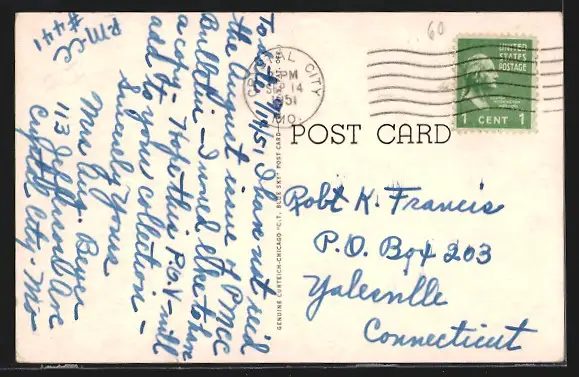 PMCC
#441
To date 9/14/51, I have not rec'd
the August issue of PMCC
Bulletin - I would like to have
a copy. Hope this P.O.V. will
add to your collection -
Sincerely Yours
Mrs. Aug. Beyer
113 Jefferson Ave
Crystal City - Mo
CRYSTAL CITY
PM
SEP 14
1951
MO.
60
UNITED
STATES
POSTAGE
1 CENT 1
POST CARD
GENUINE CURTEICH-CHICAGO "C.T. BLUE SKY" POST CARD
Robt K. Francis
P.O. Box 203
Yalesville
Connecticut